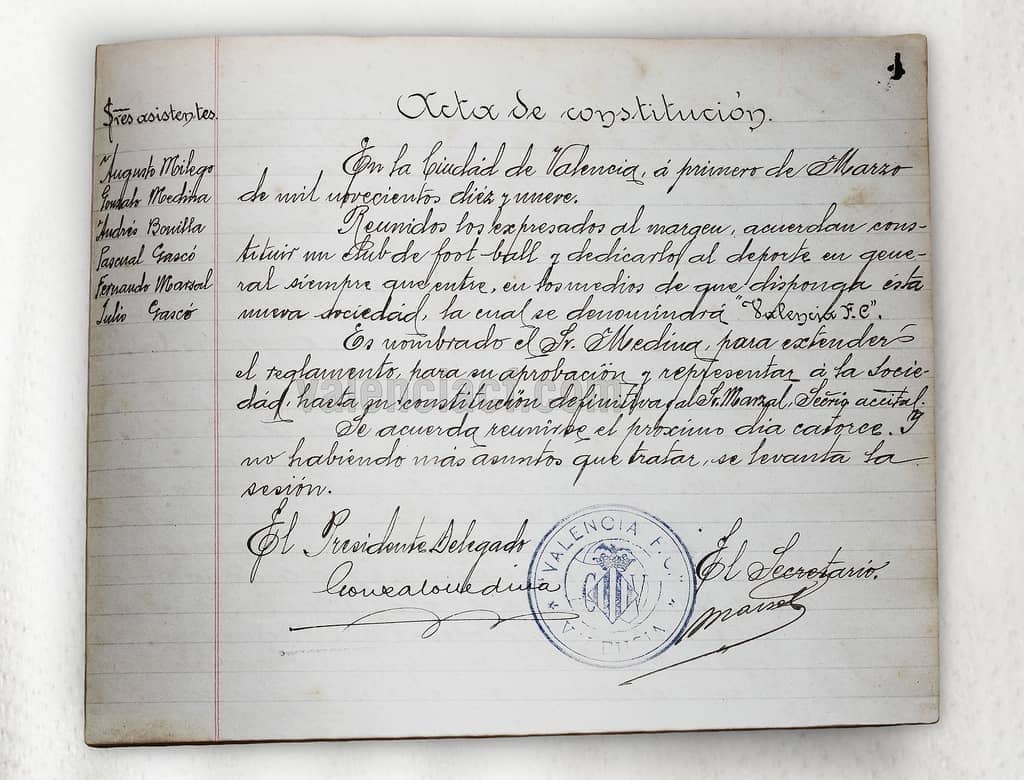 1
Sres asistentes
Augusto Milego
Gonzalo Medina
Andrés Bonilla
Pascual Gascó
Fernando Marsal
Julio Gascó
Acta de constitución.
En la Ciudad de Valencia, á primero de Marzo
de mil novecientos diéz y nueve.
Reunidos los expresados al margen, acuerdan cons-
tituir un Club de foot-ball y dedicarlo al deporte en gene-
ral siempre que entre, en los medios de que disponga esta
nueva sociedad, la cual se denominará "Valencia F.C".
Es nombrado el Sr. Medina, para extender
el reglamento, para su aprobación y representar á la Socie-
dad, hasta su constitución definitiva y al Sr. Marzal, Secrio accital.
Se acuerda reunirse el próximo dia catorce. Y
no habiendo más asuntos que tratar, se levanta la
sesión.
El Presidente Delegado
Gonzalo Medina
El Secretario.
Marsal
"VALENCIA F.C."
VALENCIA
valenciacf.com